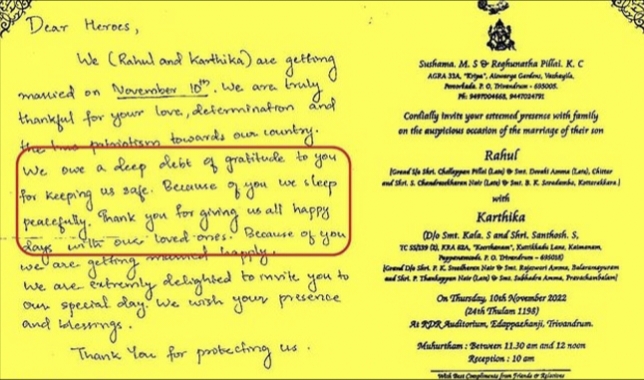 Dear Heroes,
We (Rahul and Karthika) are getting
married on November 10th. We are truly
thankful for your love, determination and
the true patriotism towards our country.
We owe a deep debt of gratitude to you
for keeping us safe. Because of you we sleep
peacefully. Thank you for giving us all happy
days with our loved ones. Because of you
we are getting married happily.
We are extremly delighted to invite you to
our special day. We wish your presence
and blessings.
Thank You for protecting us.
Sushama. M. S & Reghunatha Pillai. K. C
AGRA 22A, "Kripa", Gardens,
P. O, Trivandrum - 695005.
Ph: 9497004665, 9447024791
Cordially invite your esteemed presence with family
on the auspicious occasion of the marriage of their son
Rahul
(Grand S/o Shri. Chellappan Pillai (Late) & Smt. Devaki Amma (Late), Chittar
and Shri. S. Chandrasekharan Nair (Late) & Smt. B. K. Kottarakkara.)
with
Karthika
(D/o Smt. Kala. S and Shri. Santhosh. S,
TC KRA 62A, Kuttikkadu Lane, Kaimanam,
Pappanamcode. P. O. Trivandrum - 695018)
(Grand D/o Shri. P. K. Nair & Smt. Rajeswari Amma, Balaramapuram
and Shri. P. Thankappan Nair (Late) & Smt. Subhadra Amma, Pravachambalam)
On Thursday, 10th November 2022
(24th Thulam 1198)
At RDR Auditorium, Edappazhanji, Trivandrum.
Muhurtham : Between 11.30 am and 12 noon
Reception : 10 am
With Best Compliments from Friends & Relatives